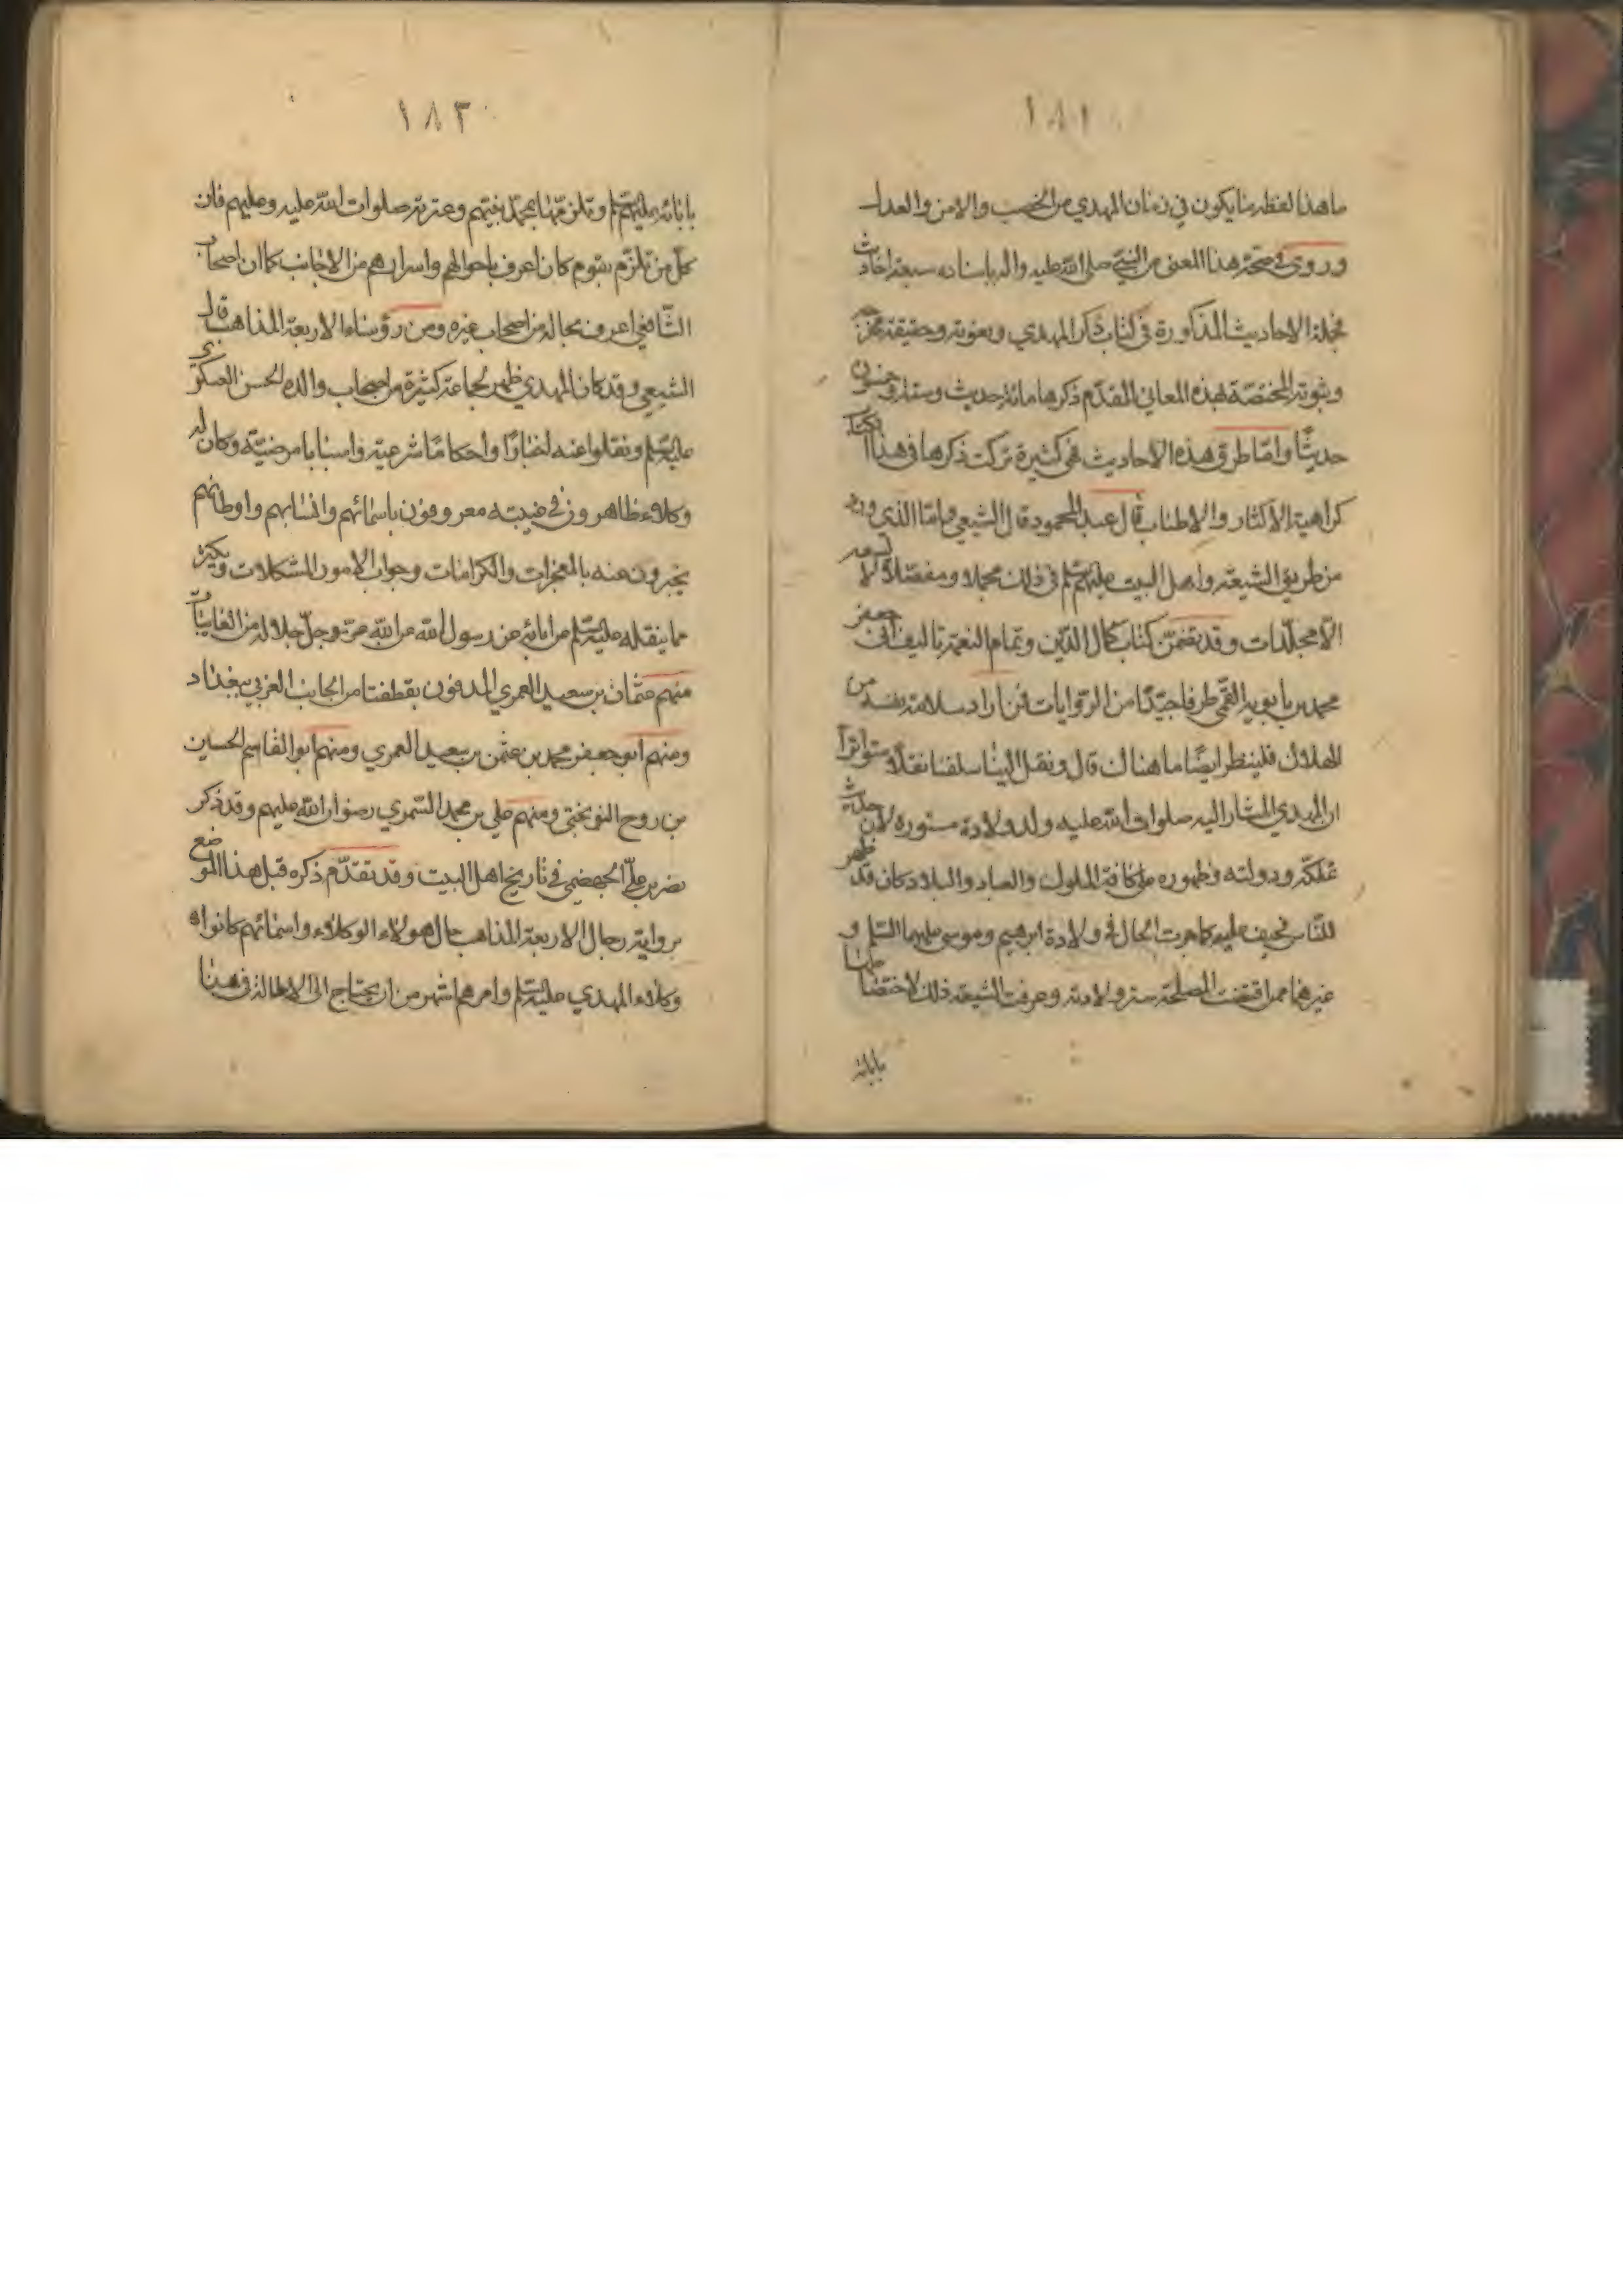 ١٨١
ما هذا لفظه ما يكون في زمان المهدي من الخصب والامن والعدل
وروى في صحة هذا المعنى من النبي صلى الله عليه واله باسناده سبعة احاديث
فجملة الاحاديث المذكورة في كتاب ذكر المهدي ونعوته وحقيقة مخرجه
وثبوته المختصة بهذه المعاني المقدّم ذكرها مائة حديث وستة وخمسون
حديثًا وامّا طرق هذه الاحاديث فهي كثيرة تركت ذكرها في هذا الكتاب
كراهية الاكثار والاطناب قال عبد المحمود قال الشيعي وامّا الذي ورد
من طريق الشيعة واهل البيت عليهم السلم في ذلك مجملا ومفصّلا لا يسعه
الّا مجلّدات وقد تضمّن كتاب كمال الدّين وتمام النعمة تاليف ابى جعفر
محمد بن بابويه القمّي طرفا جيّدًا من الرّوايات فمن اراد سلامة نفسه من
الهلاك فلينظر ايضًا ما هناك قال ونقل الينا سلفنا نقلًا متواترًا
ان المهدي المشار اليه صلوات الله عليه ولد ولادة مستورة لان حديث
تملكه ودولته وظهوره على كافة الملوك والعباد والبلاد كان قد ظهر
للناس فخيف عليه كما جرت الحال في ولادة ابرهيم وموسى عليهما السّلم و
غيرهما ممن اقتضت المصلحة ستر ولادته وعرفت الشيعة ذلك لاختصاصها
بابائه
١٨٣
بابائه عليهم السلم وتلزمها بمحمّد نبيهم وعترته صلوات الله عليه وعليهم فان
كلّ من تلزّم بقوم كان اعرف باحوالهم واسرارهم من الاجانب كما ان اصحاب
الشّافعي اعرف بحاله من اصحاب غيره ومن رؤساء الاربعة المذاهب قال
الشيعي وقد كان المهدي ظهر لجماعة كثيرة من اصحاب والده الحسن العسكرى
عليه السلم ونقلوا عنه اخبارًا واحكامًا شرعية واسبابا مرضيّة وكان له
وكلاء ظاهرون في غيبته معروفون باسمائهم وانسابهم واوطانهم
يخبرون عنه بالمعجزات والكرامات وجواب الامور المشكلات وبكثير
مما ينقله عليه السلم من ابائه عن رسول الله من الله عزّ وجلّ جلاله من الغايبات
منهم عثمان بن سعيد العمري المدفون بقطفتا من الجانب الغربي ببغداد
ومنهم ابو جعفر محمد بن عثمن بن سعيد العمري ومنهم ابو القاسم الحسين
بن روح النوبختي ومنهم علي بن محمد السّمري رضوان الله عليهم وقد ذكر
نصر بن عليّ الجهضمي في تاريخ اهل البيت وقد تقدّم ذكره قبل هذا الموضع
برواية رجال الاربعة المذاهب حال هولاء الوكلاء واسمائهم كانوا
وكلاء المهدي عليه السلم وامرهم اشهر من ان يحتاج الى الاطالة في هذا